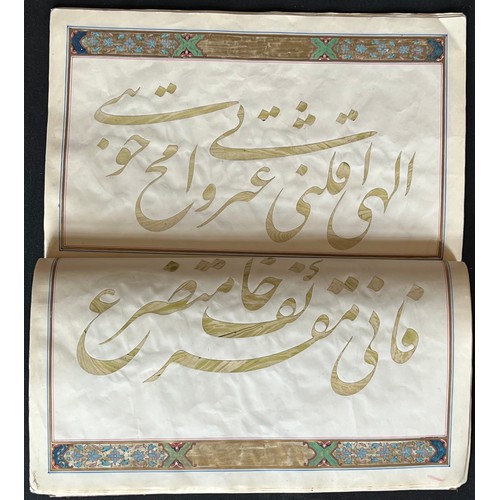 الهي اقلني عثرتي وامح حوبتي
فاني مقر خائف متضرع